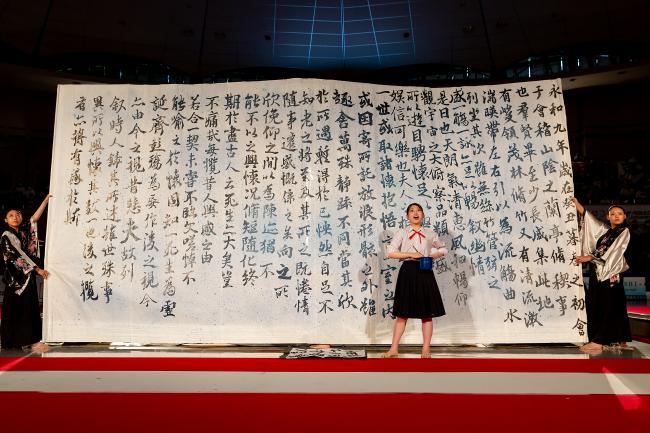 永和九年歳在癸丑暮春之初會
于會稽山陰之蘭亭脩稧事
也羣賢畢至少長咸集此地
有崇領茂林脩竹又有清流激
湍暎帶左右引以為流觴曲水
列坐其次雖無絲竹管弦之
盛一觴一詠亦足以暢叙幽情
是日也天朗氣清恵風和暢仰
觀宇宙之大俯察品類之盛
所以遊目騁懷足
娯信可樂也夫人之
一世或取諸懷抱悟言一室之内
或因寄所託放浪形骸之外雖
趣舍萬殊静躁不同當其欣
於所遇蹔得於己怏然自足不
知老之將至及其所之既惓情
隨事遷感慨係之矣向之所
欣俛仰之間以為陳迹猶不
能不以之興懷況脩短隨化終
期於盡古人云死生亦大矣豈
不痛哉每攬昔人興感之由
若合一契未嘗不臨文嗟悼不
能喻之於懷固知一死生為虛
誕齊彭殤為妄作後之視今
亦由今之視昔悲夫故列
叙時人錄其所述雖世殊事
異所以興懷其致一也後之攬
者亦將有感於斯